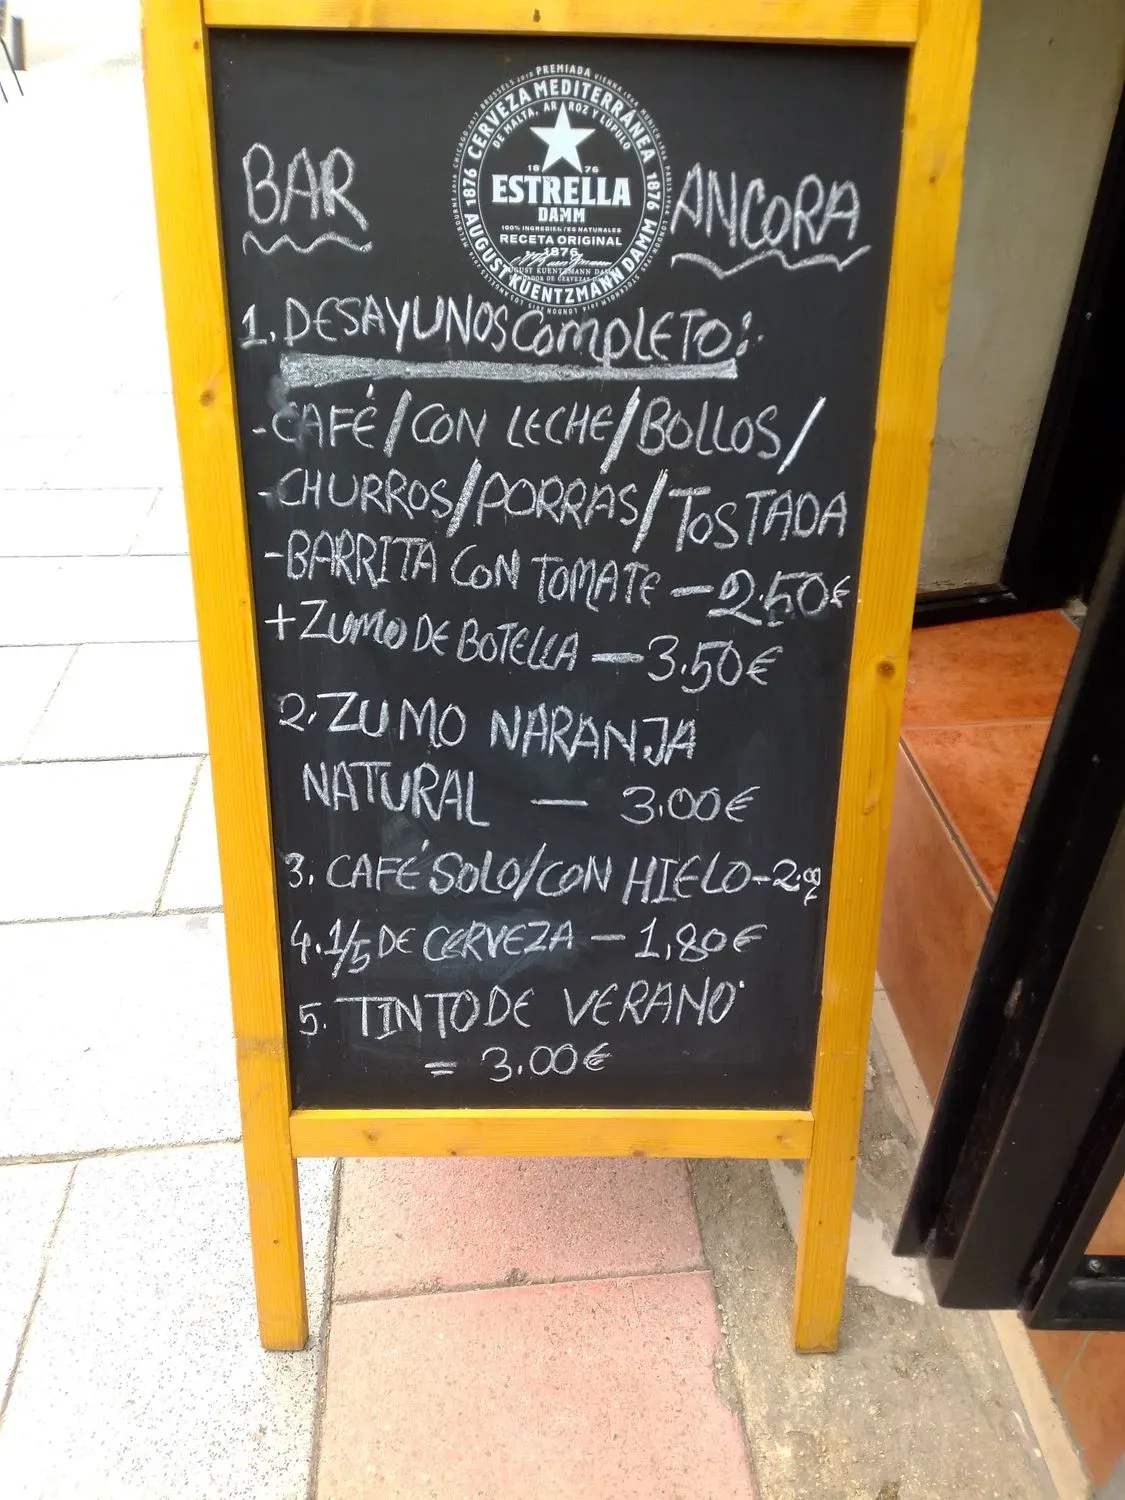 PREMIADA
CERVEZA MEDITERRÁNEA
DE MALTA, ARROZ Y LÚPULO
1876
1876
18 76
ESTRELLA
DAMM
100% INGREDIENTES NATURALES
RECETA ORIGINAL
1876
AUGUST KUENTZMANN DAMM
FUNDADOR DE CERVEZAS DAMM
AUGUST KUENTZMANN DAMM
BAR ANCORA
1. DESAYUNOS COMPLETO:
-CAFÉ/CON LECHE/BOLLOS/
-CHURROS/PORRAS/TOSTADA
-BARRITA CON TOMATE -2.50€
+ZUMO DE BOTELLA -3.50€
2. ZUMO NARANJA
NATURAL - 3.00€
3. CAFÉ SOLO/CON HIELO-2.00€
4. 1/5 DE CERVEZA - 1,80€
5. TINTO DE VERANO
= 3.00€